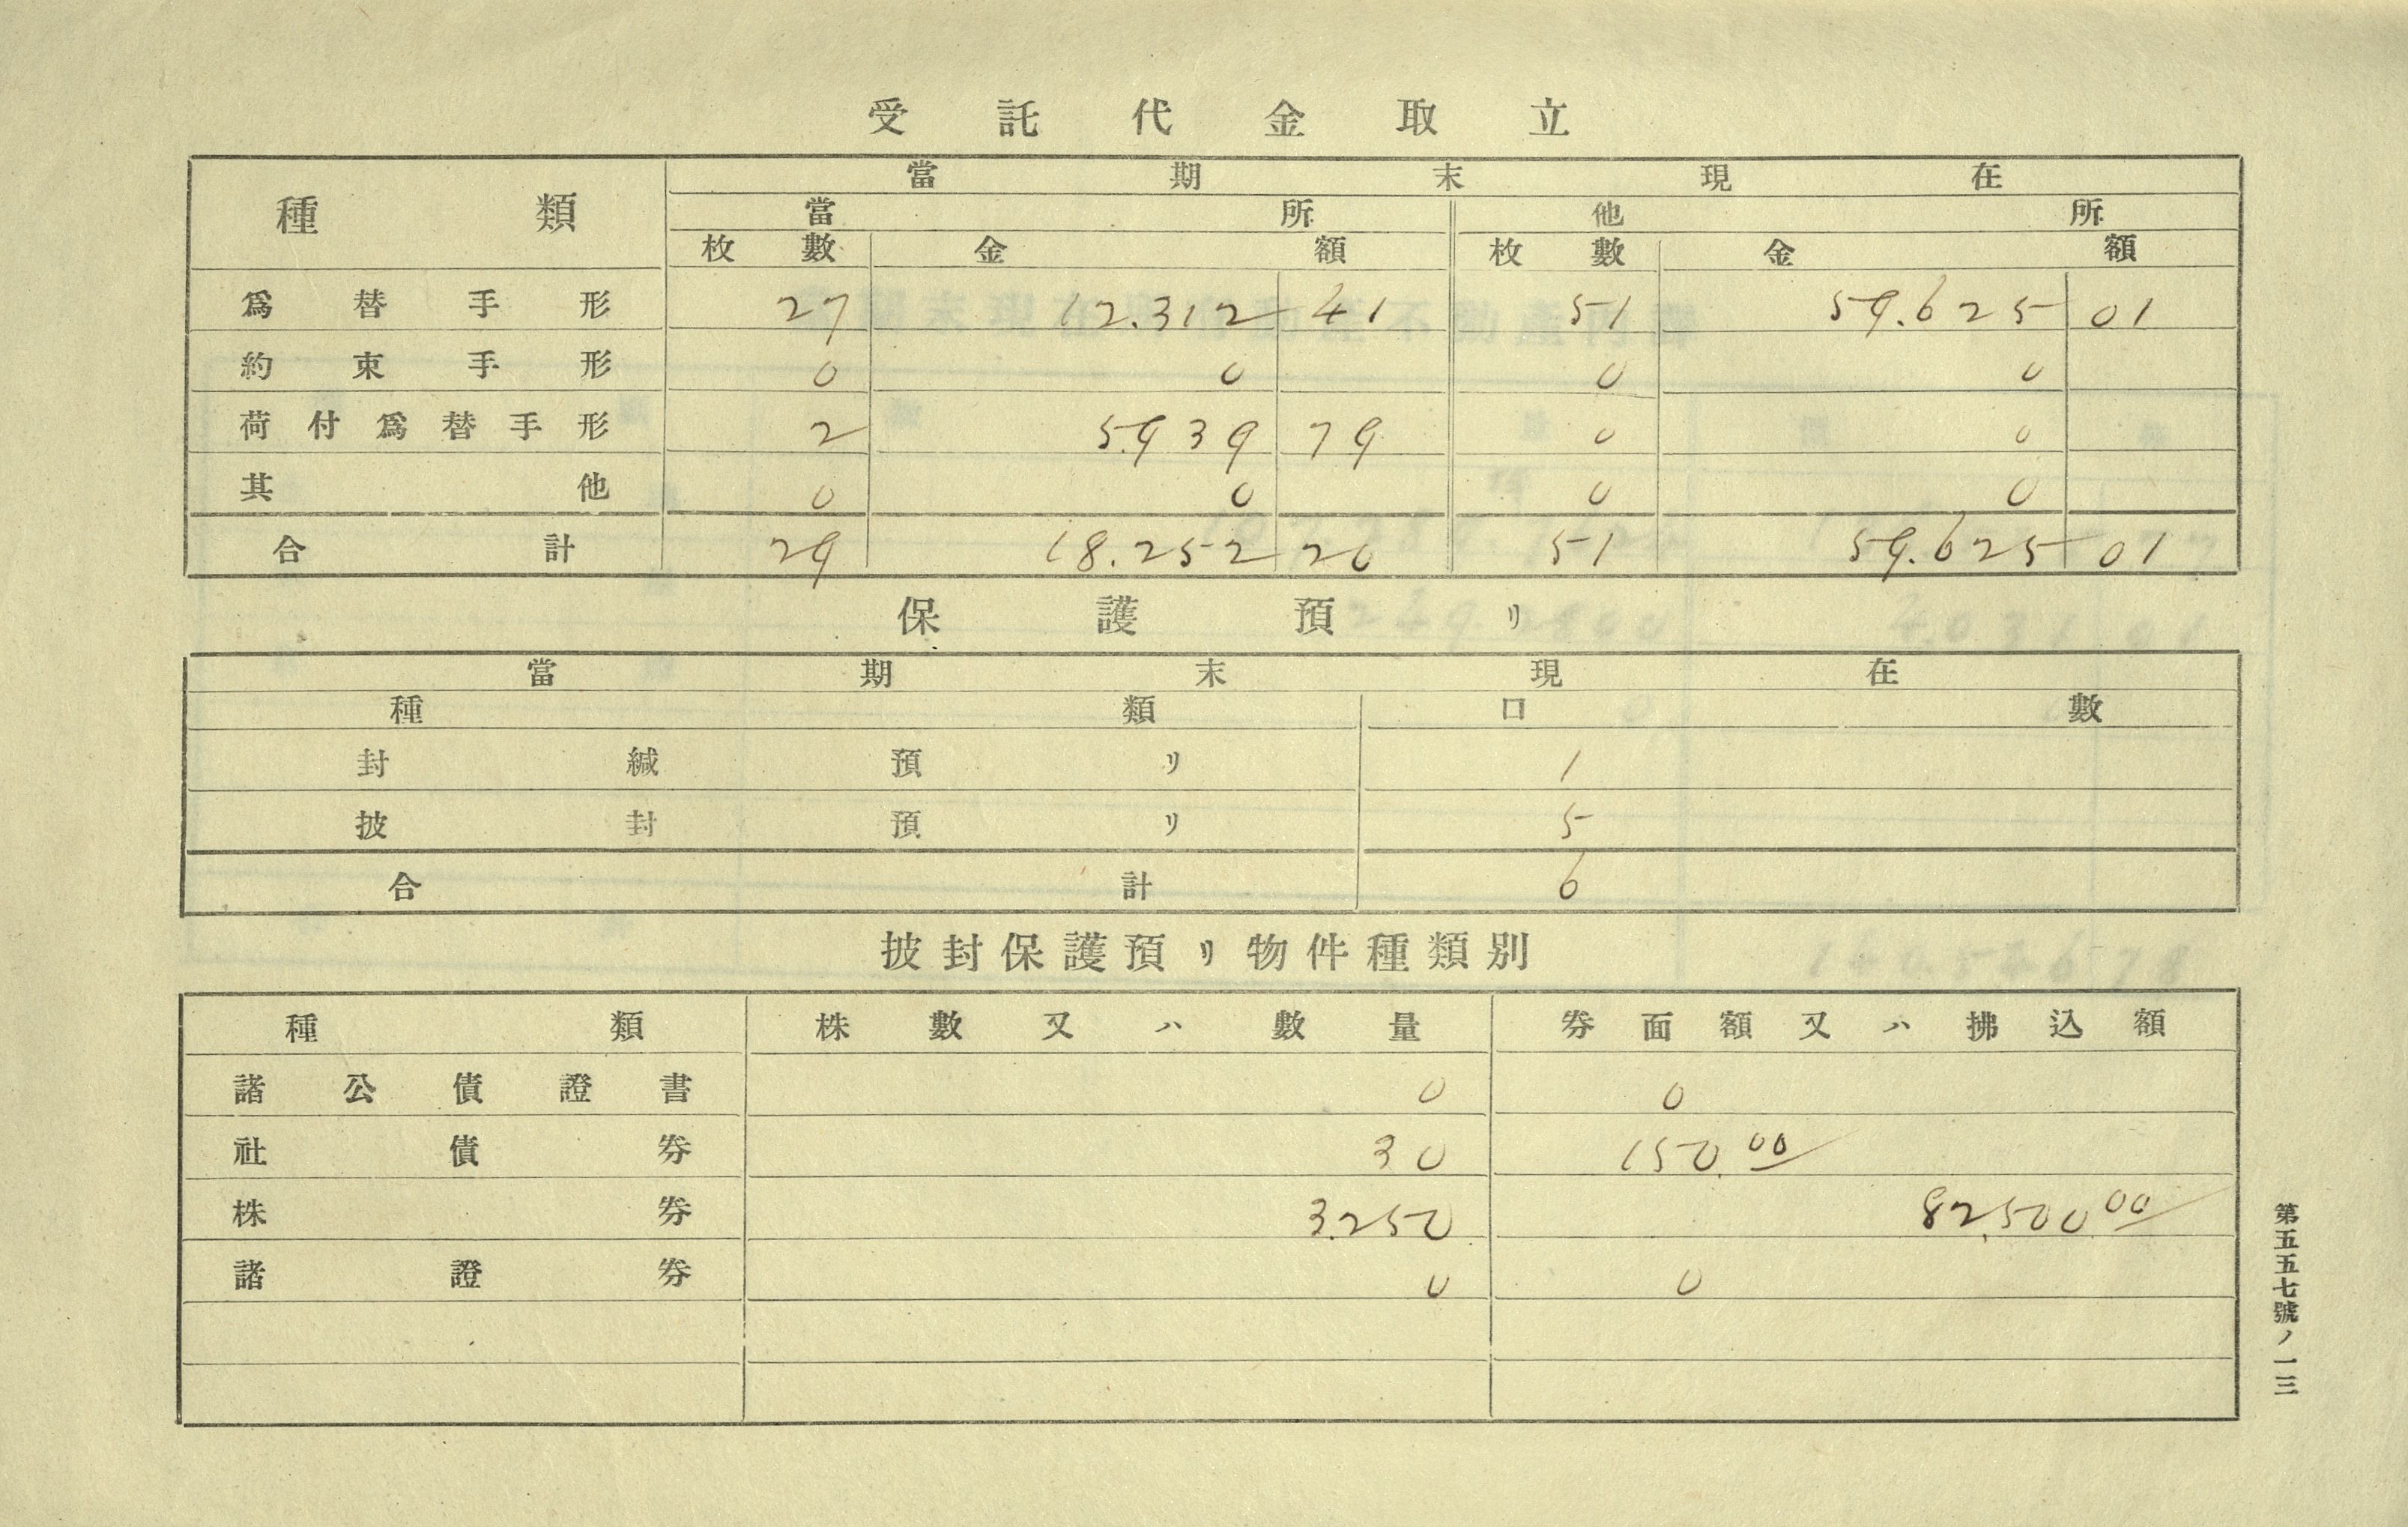 受託代金取立
種類 當期末現在
當所 他所
枚數 金額 枚數 金額
爲替手形 27 12.312 41 51 59.625 01
約束手形 0 0 0 0
荷付爲替手形 2 5.939 79 0 0
其他 0 0 0 0
合計 29 18.252 20 51 59.625 01
保護預リ
當期末現在
種類 口數
封緘預リ 1
披封預リ 5
合計 6
披封保護預リ物件種類別
種類 株數又ハ數量 券面額又ハ拂込額
諸公債證書 0 0
社債券 30 150.00
株券 3.250 82.500.00
諸證券 0 0
第五五七號ノ一三